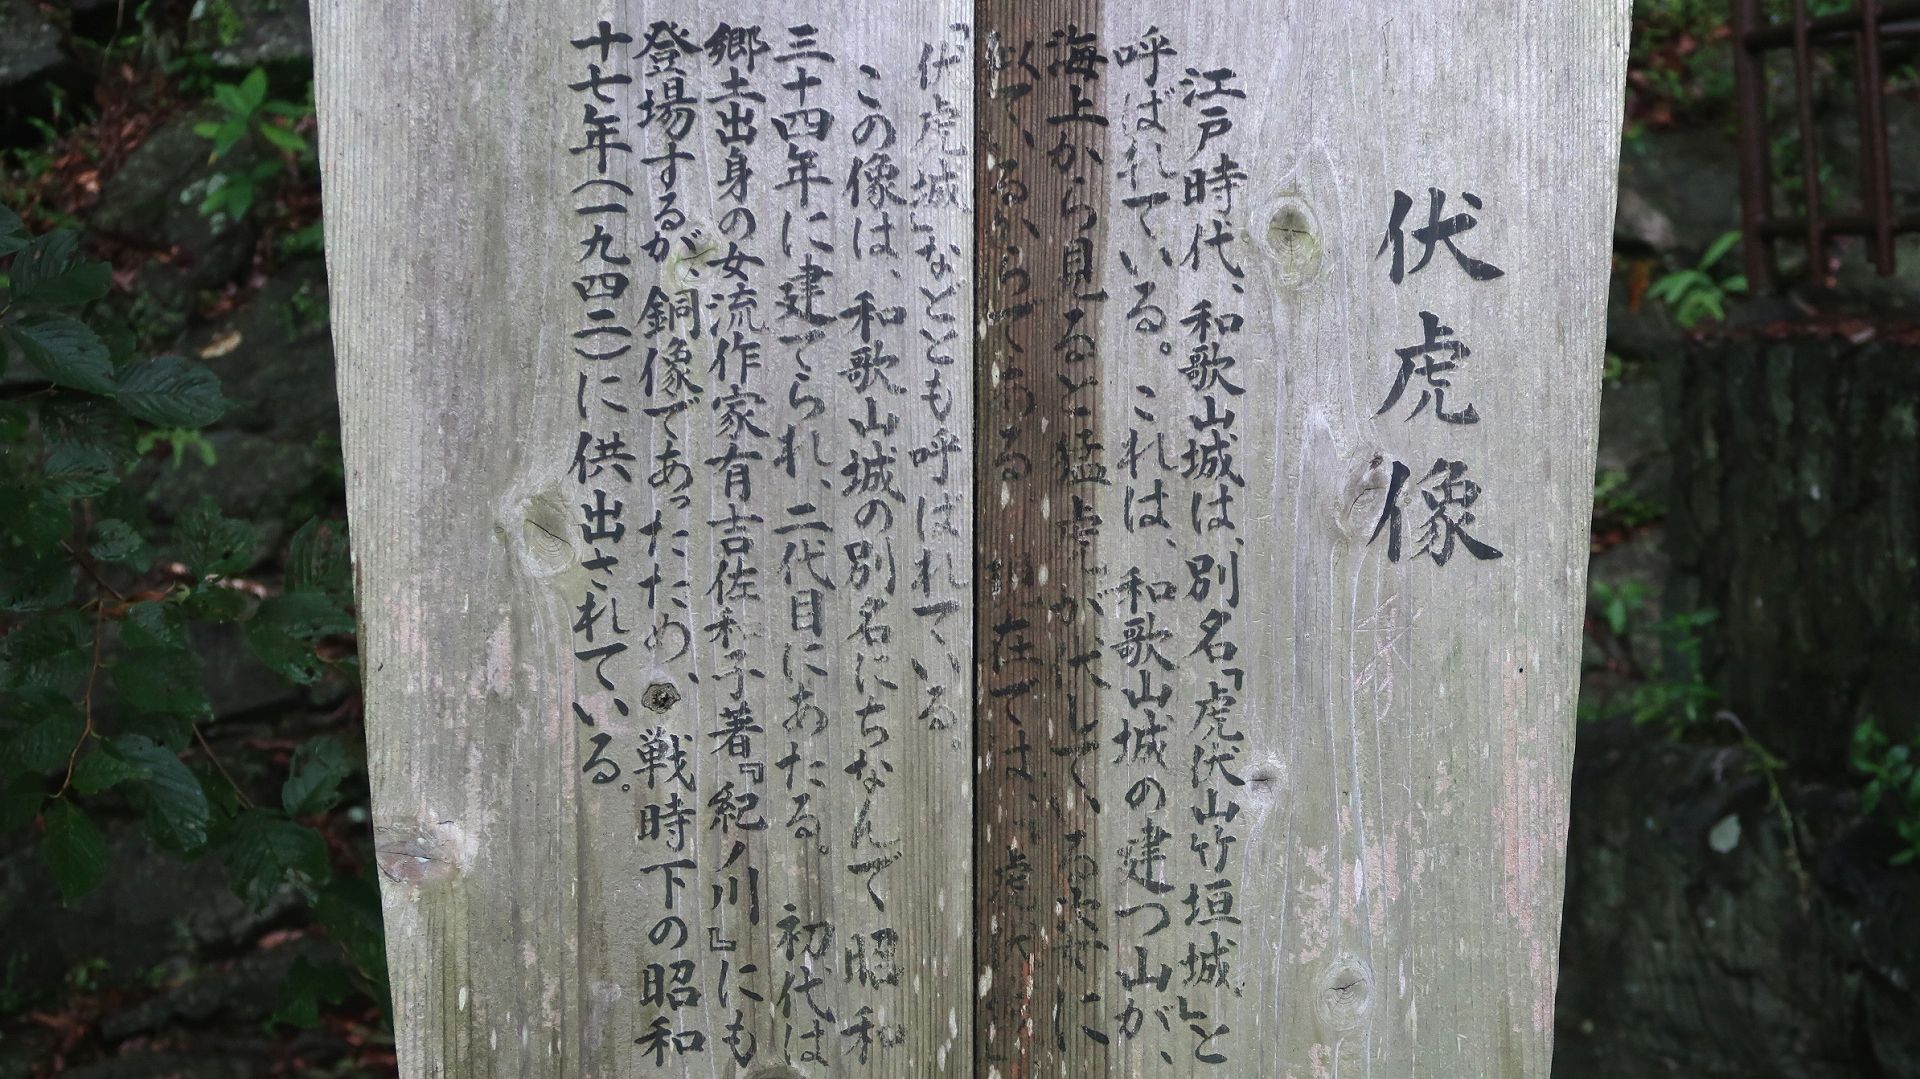 伏虎像
江戸時代、和歌山城は、別名『虎伏山竹垣城』と
呼ばれている。これは、和歌山城の建つ山が、
海上から見ると猛虎が伏している姿に
似ているからである 在では、 虎伏
「伏虎城」などとも呼ばれている。
この像は、和歌山城の別名にちなんで昭和
三十四年に建てられ、二代目にあたる。初代は
郷土出身の女流作家有吉佐和子著『紀ノ川』にも
登場するが、銅像であったため、戦時下の昭和
十七年(一九四二)に供出されている。